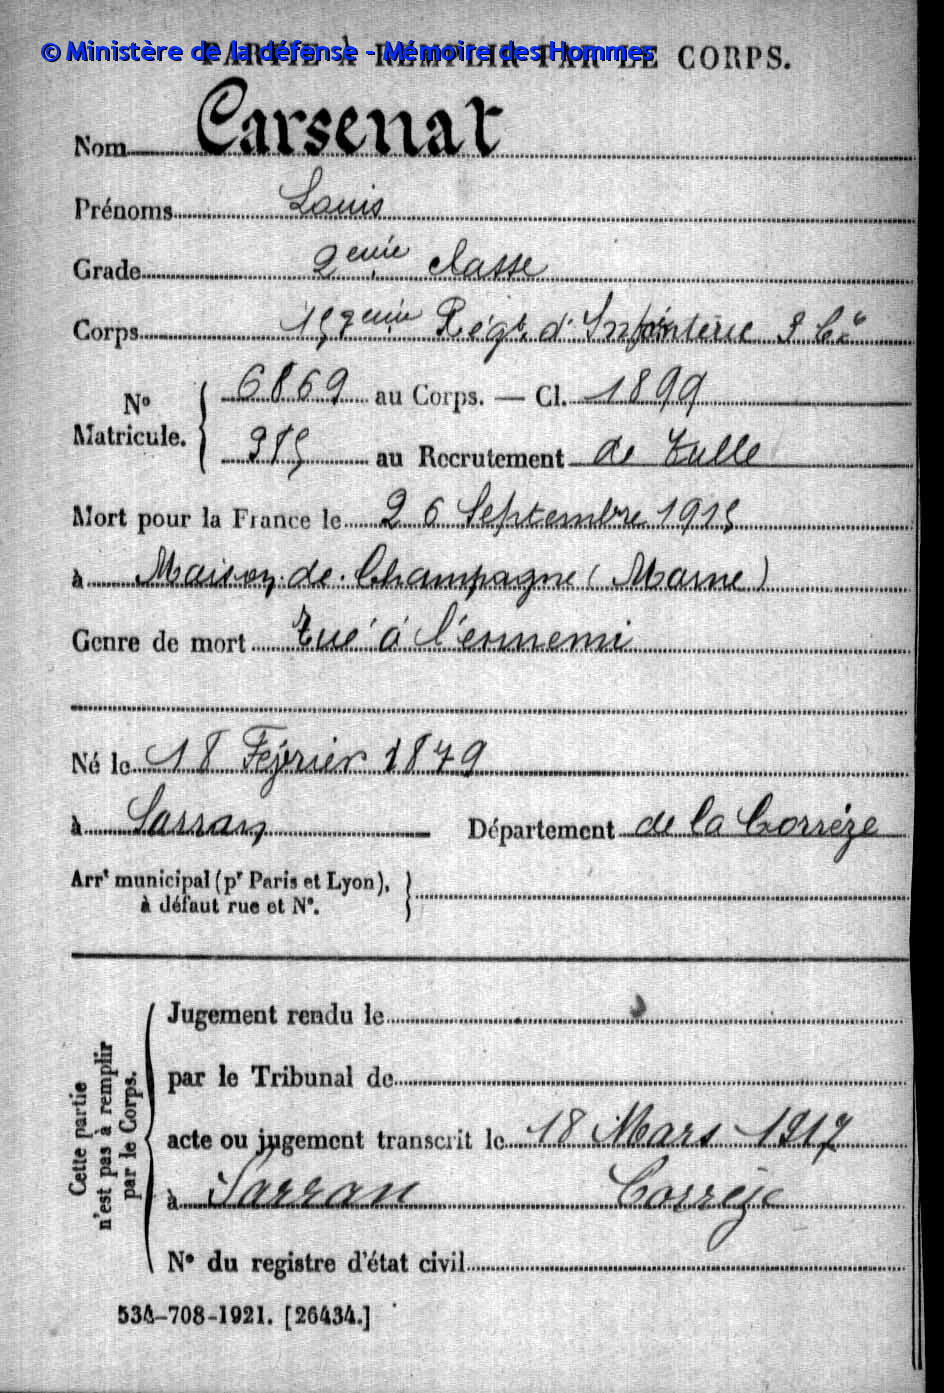 © Ministère de la défense - Mémoire des Hommes
PARTIE À REMPLIR PAR LE CORPS.
Nom Carsenat
Prénoms Louis
Grade 2eme classe
Corps eme Régt. d'Infanterie Cie
No Matricule. 6869 au Corps. — Cl. 1899
au Recrutement de Tulle
Mort pour la France le 26 Septembre 1915
à Maison de Champagne (Marne)
Genre de mort Tué à l'ennemi
Né le 18 Février 1879
à Sarran Département de la Corrèze
Arrt municipal (pr Paris et Lyon),
à défaut rue et No.
Cette partie
n'est pas à remplir
par le Corps.
Jugement rendu le
par le Tribunal de
acte ou jugement transcrit le 18 Mars 1917
à Sarran Corrèze
No du registre d'état civil
534-708-1921. [26434.]